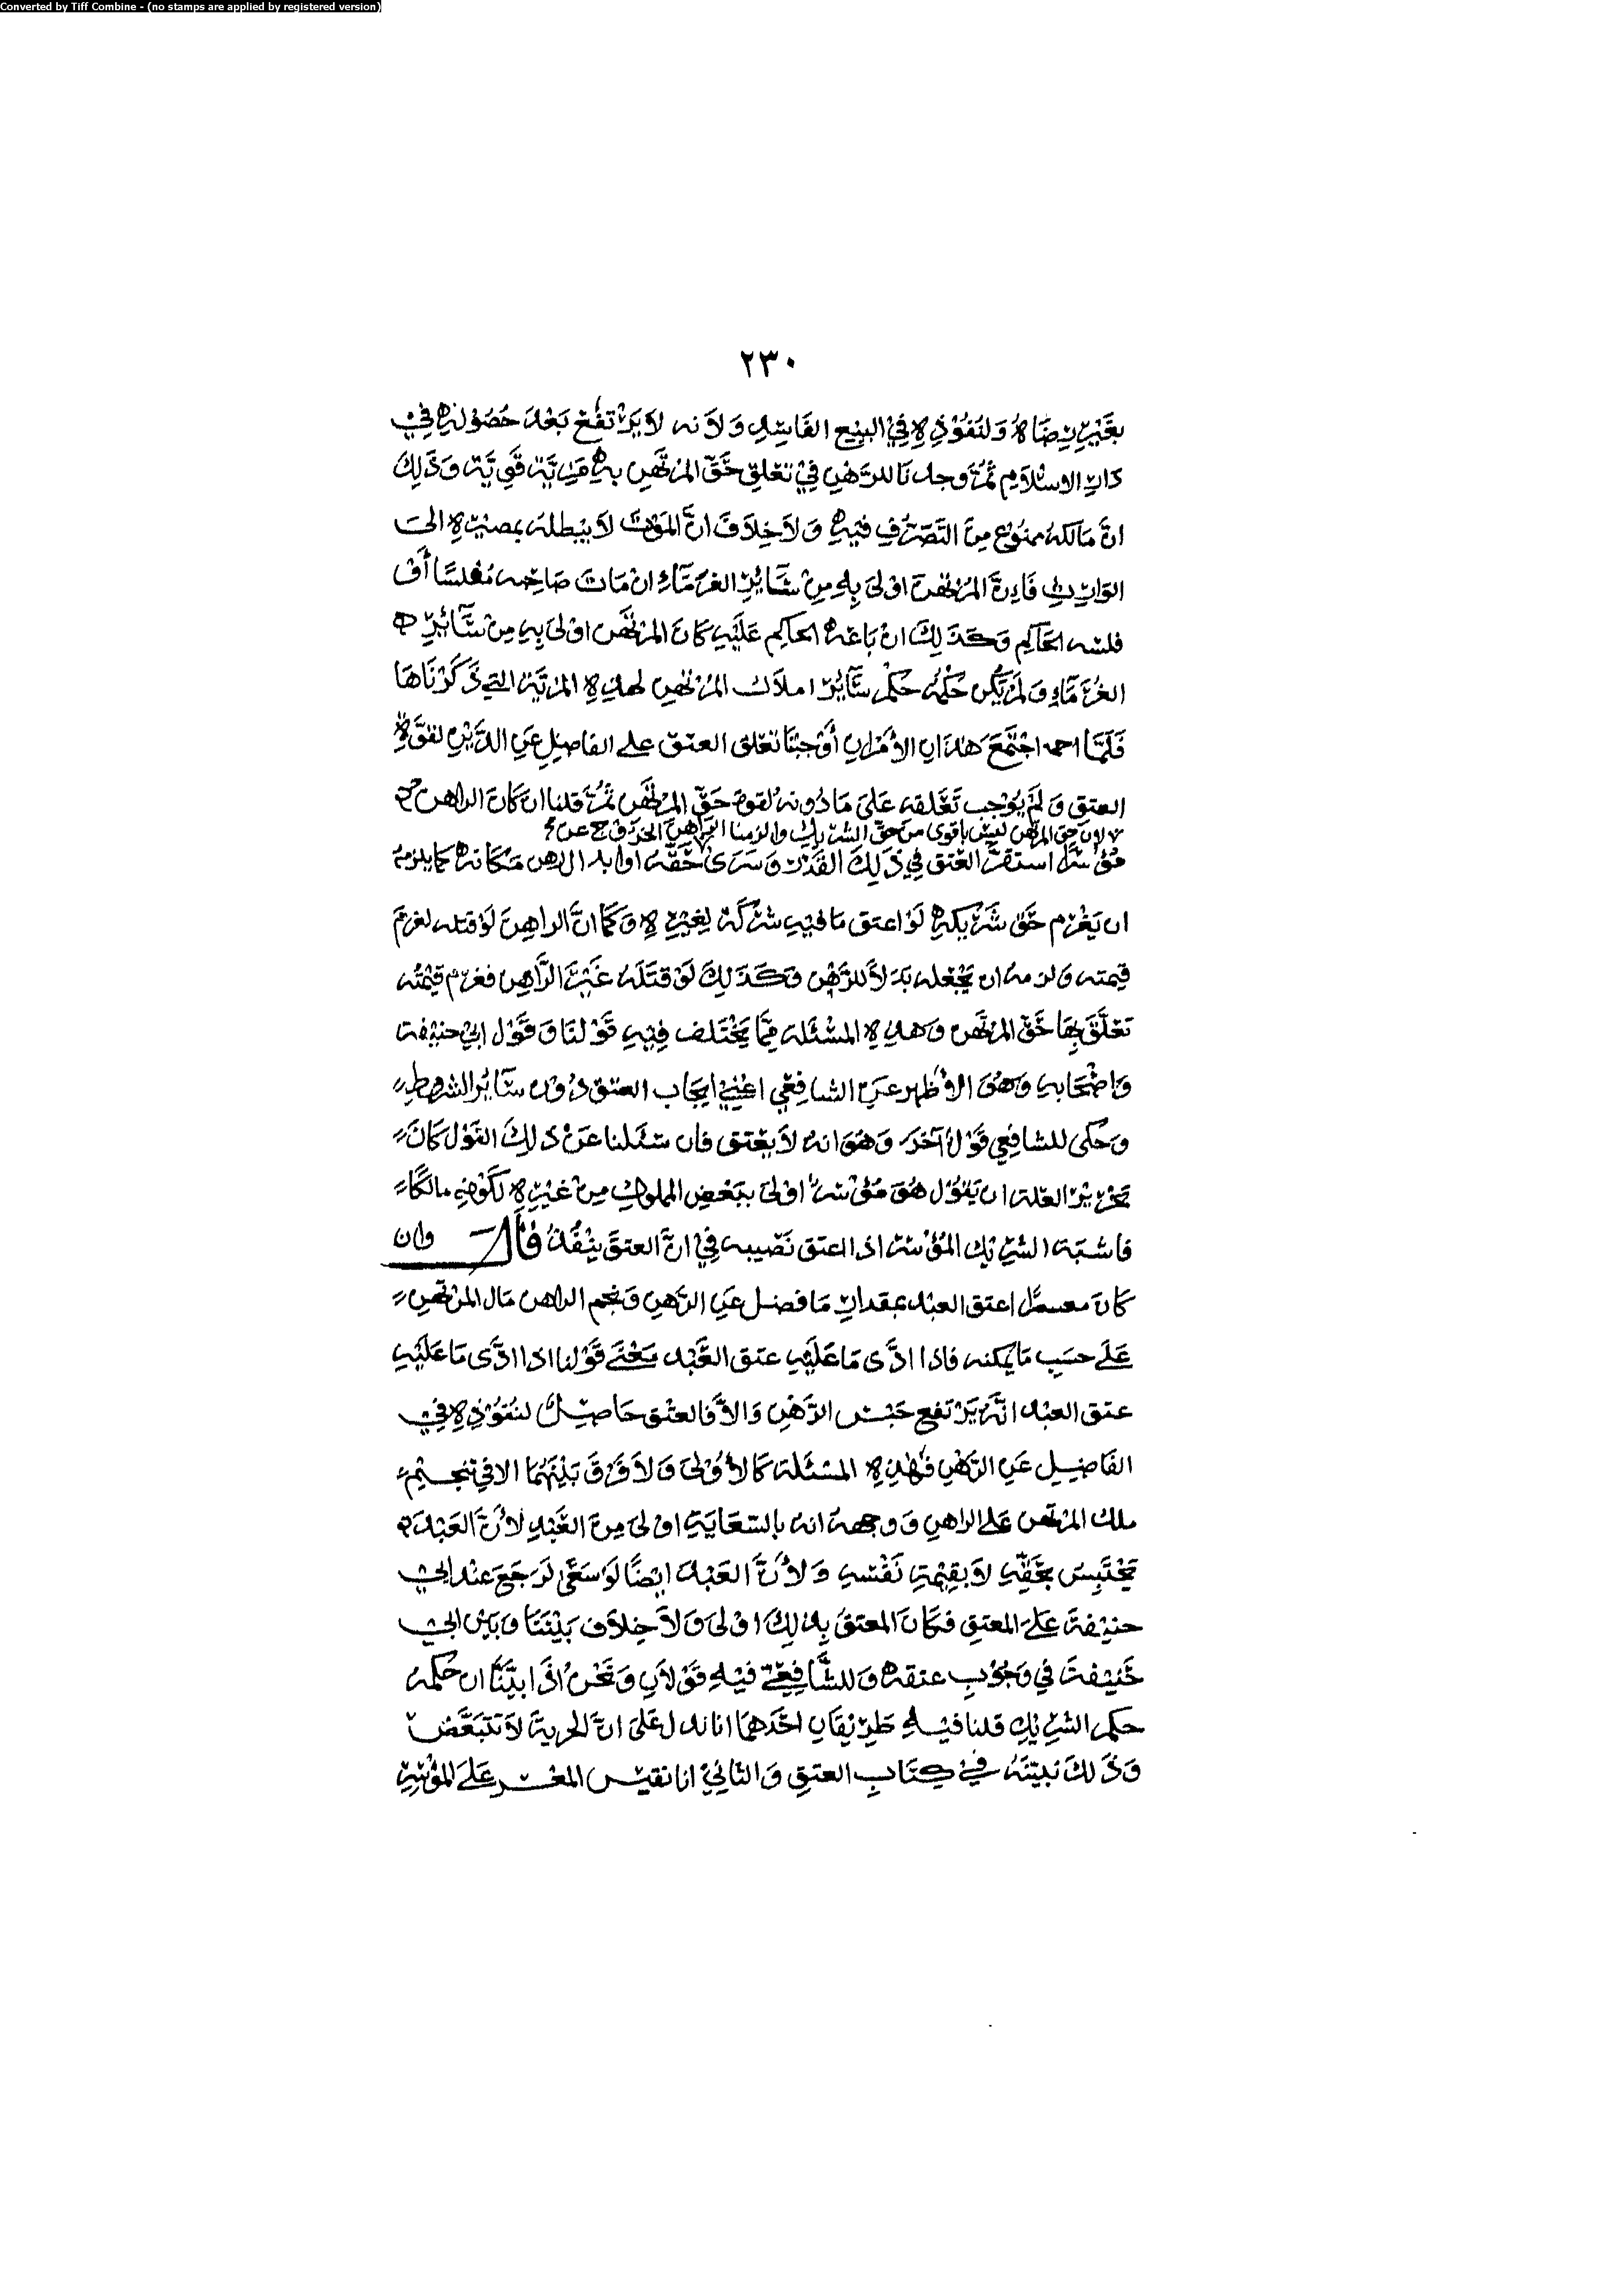 Converted by Tiff Combine - (no stamps are applied by registered version)
٢٣٠
بغَيْرِ رِضَاهُ وَلنُفُوْذِهِ فِيْ البيْع الفَاسِدِ وَلاَنه لاَ يَرْتفع بَعْدَ حُصُوْلهِ فِي
دَارِ الاسْلاَمِ ثُمَّ وجدنَا للرَّهْنِ فِيْ تعَلق حَقّ المُرْتَهِنِ بهِ مَزِيَّة قَوِيَّة وَذَلِكَ
انَّ مَالكهُ ممنوْع مِنَ التَّصَرُّفِ فيْهِ وَلاَ خِلاَفَ انَّ المَوْتَ لاَ يُبْطلهُ بمصيْرِهِ الى
الوَارِثِ فَاِنَّ المُرْتهنَ اوْلىَ بِهِ مِنْ سَآئِرِ الغرَمَآءِ انْ مَاتَ صَاحِبه مُفلسًا أوْ
فلسَه الحَاكِم وَكَذَلِكَ انْ بَاعَهُ الحَاكِم عَلَيْهِ كَانَ المُرْتَهِن اوْلىَ بِهِ مِنْ سَآئِرِ
الغُرَمَآءِ وَلَمْ يَكُن حُكْمُهُ حُكْم سَآئِرِ املاَك المُرْتَهِن لهذِهِ المزيَّة التي ذَكَرْنَاهَا
فَلَمَّا اجْتَمَعَ هَذَانِ الأَمْرَانِ أوْجبْنَا تعَلق العتق على الفَاضِلِ عَنِ الدَّيْنِ لقُوَّةِ
العتق وَلَمْ يُوْجب تَعَلقه عَلىَ مَا دُونهُ لقوة حَقّ المُرْتَهِن ثُمَّ قلنا ان كَانَ الراهن
لان حَق المرتهن ليس باقوى من حق الشريك والزمنا الراهن
مُوْسرًا استقرَّ العتق فِي ذَلِكَ القَدْر وَسَرَى حَقّه او ابدال الرهن مَكَانهُ كمَا يلزمهُ
ان يَغْرَم حَقّ شَرِيْكهِ لَوْ اعتق مَا فيْهِ شركَة لِغيْرِهِ وَكمَا انَّ الراهِنَ لَوْ قتله لغرم
قيمته وَلزمهُ ان يَجْعله بَدَلاً للرَّهْنِ وَكَذَلِكَ لَوْ قتَلَهُ غَيْر الرَّاهِنِ فغرم قيْمته
تعَلَّقَ بِهَا حَقّ المرْتَهِن وَهذِهِ المسْئلة ممَّا يَخْتَلف فِيْهِ قَوْلنَا وَقَوْل ابيْ حنيْفة
وَاصْحَابهِ وَهوَ الأظْهر عَنِ الشافِعي اعْنِي ايجَاب العتق دُوْنَ سَآئر الشروط
وَحُكى للشافِعي قَوْلٌ آخرَ وَهوَ انهُ لاَ يعْتق فان سُئلنا عَنْ ذَلِكَ القَوْل كَانَ
تحْرِيْر العلة ان يَقُوْل هُوَ مُوْسرًا اوْلىَ ببَعْضِ المملوك مِنْ غيْرِهِ لكَوْنهِ مالكًا
فاشبَهَ الشَّرِيْك المُوْسر اذا اعتق نَصيبه فِيْ انَّ العتقَ ينْفُذُ قال وان
كَانَ معسرًا اعتق العبْد بمقدارِ مَا فضل عَنِ الرَّهنِ وَنجم الراهن مَال المرْتهِن
عَلَى حسَبِ مَا يمكنه فاذا ادَّى مَا عَلَيْهِ عتق العَبْد مَعْنَى قَوْلنا اذا ادَّى مَا عَليْهِ
عتق العبْد انَّهُ يَرْتفع حَبْس الرَّهْنِ وَالاَّ فالعتْق حَاصِل لنُفُوْذِهِ فِي
الفَاضِلِ عَنِ الرَّهْنِ فَهذِهِ المسْئلة كَالأُوْلى وَلاَ فَرْقَ بَيْنَهُمَا الا فِي تنجيْم
ملك المرْتهن عَلى الراهِنِ وَوجههُ انه بالسّعَايَةِ اوْلىَ مِنَ العَبْدِ لأَنَّ العَبْدَ
يَحْتَبِسُ بحَقِّهِ لاَ بقيْمةِ نَفْسهِ وَلأَنَّ العَبْدَ ايضًا لَوْ سَعَى لرَجَعَ عنْد ابي
حنيْفةَ عَلىَ المعتقِ فكَانَ المعتقُ بِذلِكَ اوْلىَ وَلاَ خِلاَف بَيْنَنَا وَبَيْن ابي
حَنِيْفةَ فِي وجُوْبِ عتقهِ وَللشَّافِعِيّ فيْهِ قَوْلاَنِ وَنَحْنُ اذَا بيَّنَّا ان حُكمهُ
حكم الشرِيْكِ قلنا فيْهِ طَرِيْقَانِ احَدهمَا انا ندل عَلىَ انَّ الحرية لاَ تتَبَعَّض
وَذَلكَ نبيّنهُ فِي كِتَابِ العتقِ وَالثانِيْ انا نقيْس المعْسر عَلىَ المُوْسِرِ